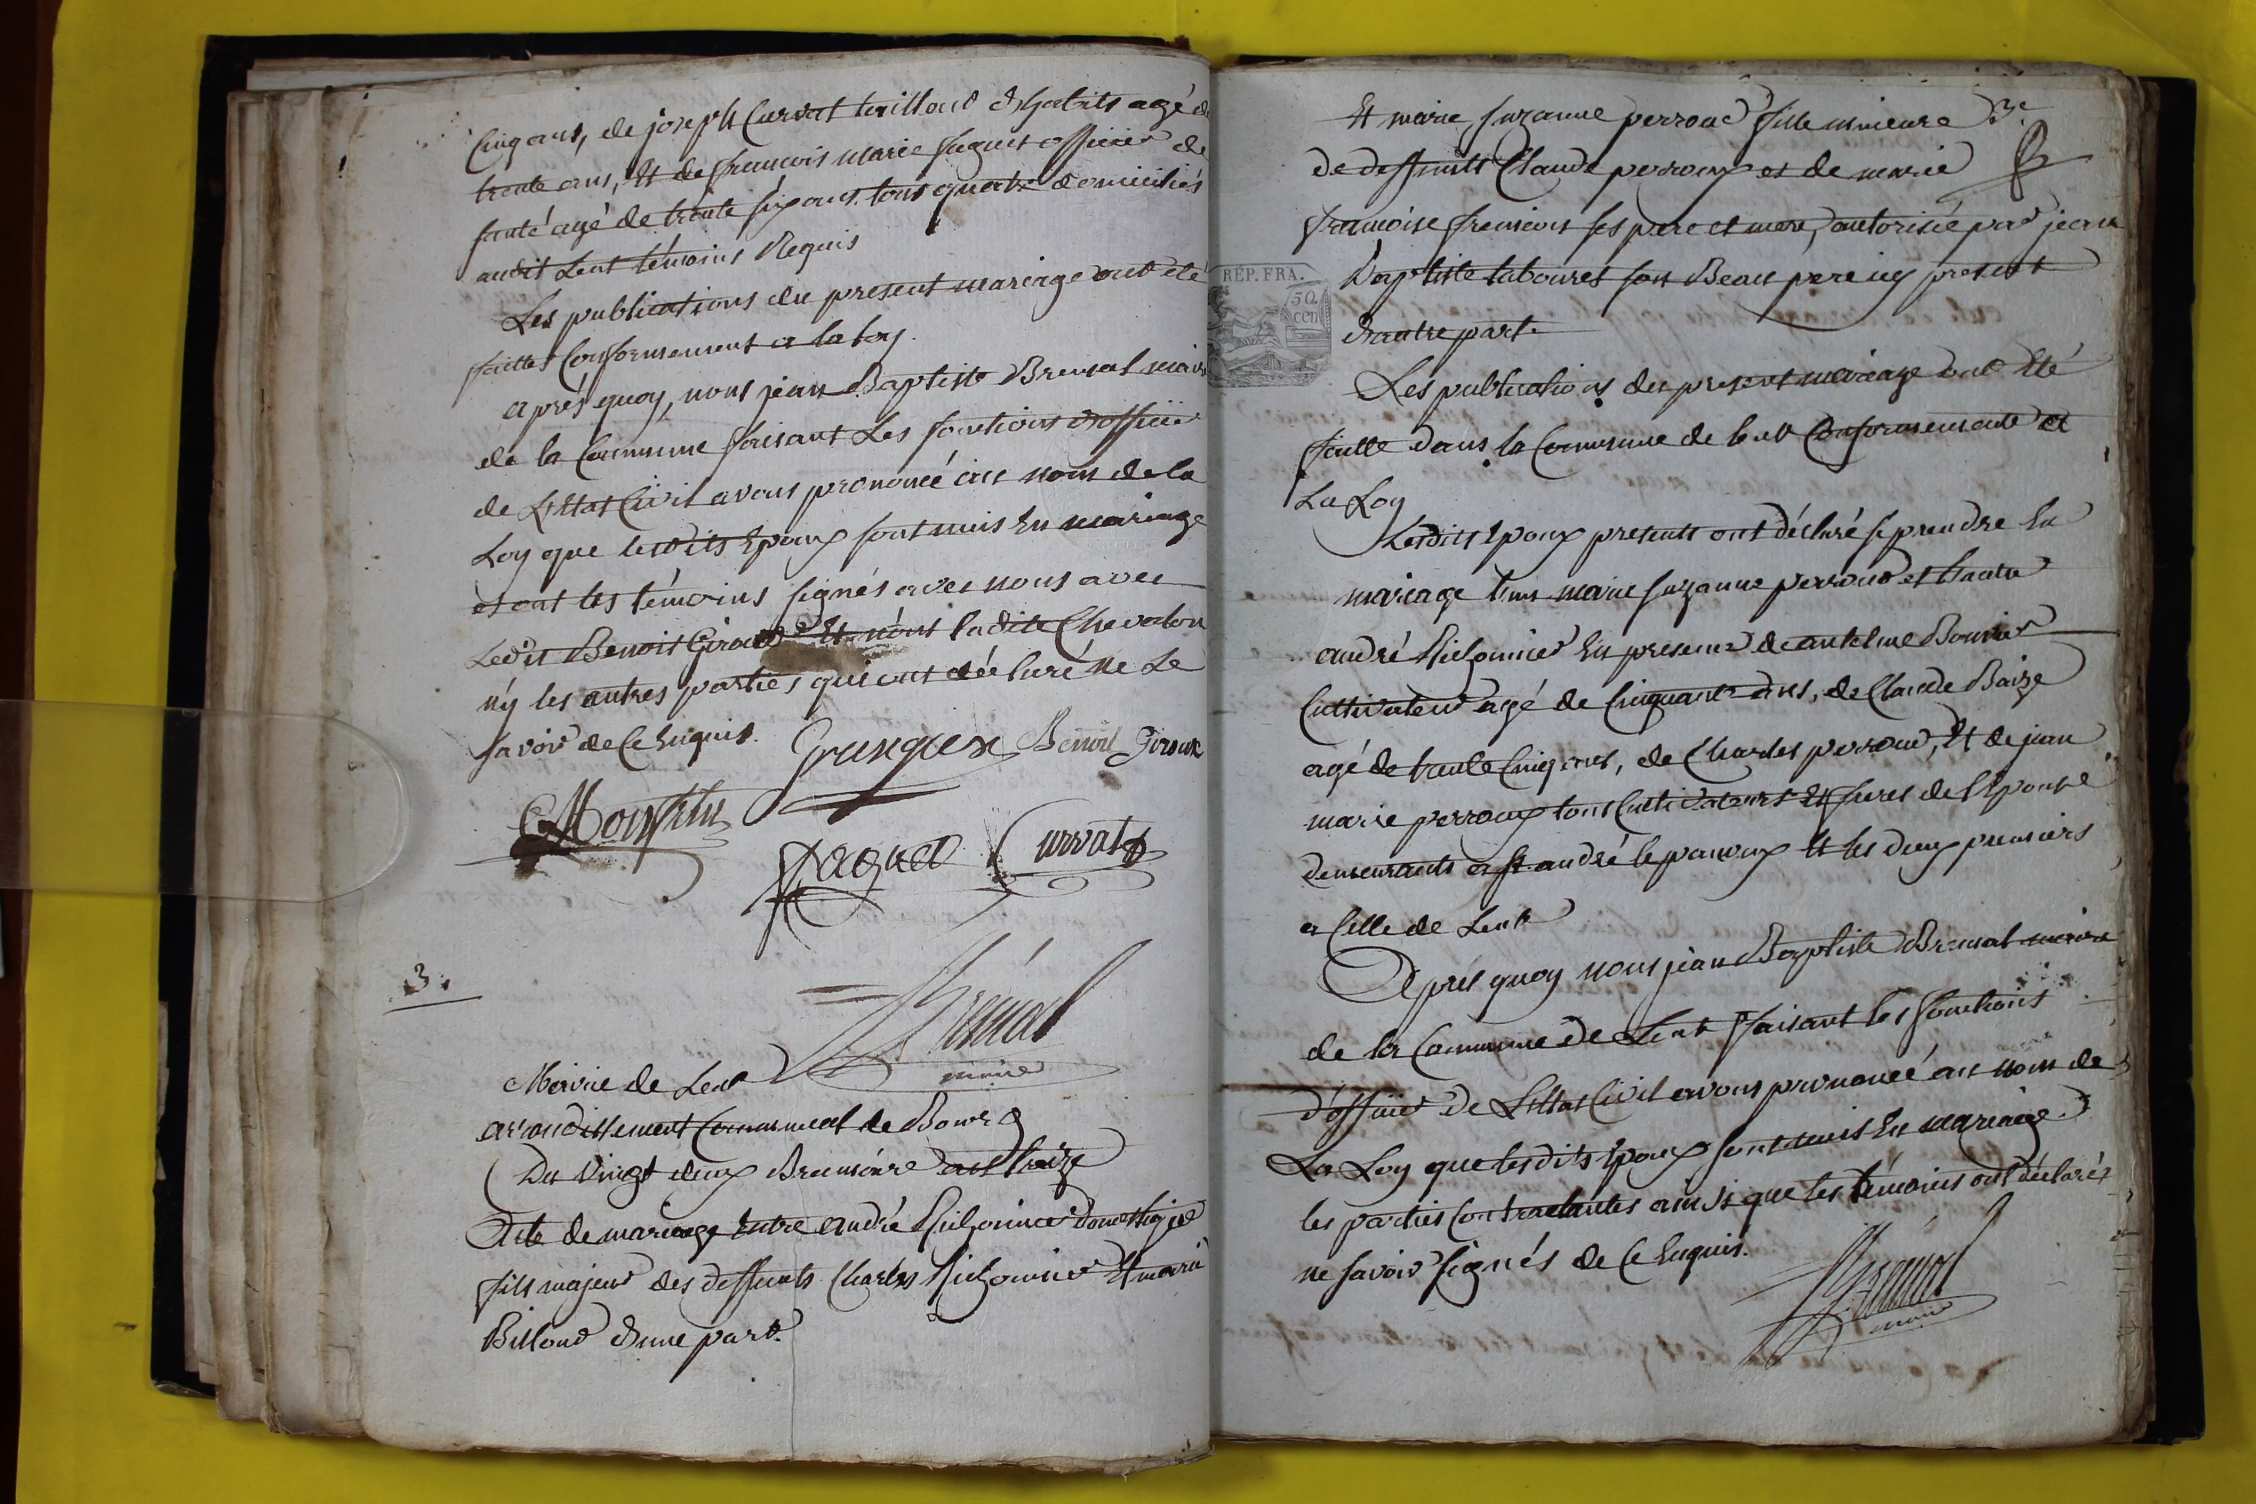 Cinq ans, de joseph Curvat tailleur d'habits agé de
trente ans, Et de francois marie faguet officier de
santé agé de trente six ans tous quatre domiciliés
audit Lent témoins Requis
Les publications du present mariage ont été
faittes Conformement a la loy.
après quoy, nous jean Baptiste Bremal maire
de la Commune faisant Les fonctions d'officier
de L'Etat Civil avons prononcé au nom de la
Loy que lesdits Epoux sont unis En mariage
et ont les témoins signés avec nous avec
Ledit Benoit Giroud Et non ladite Chevalon
n'y les autres parties qui ont déclaré ne Le
savoir de Ce Enquis. Grangier Benoit Giroux
Faguet Curvat
3.
Bremal
maire
Mairie de Lent
arrondissement Communal de Bourg
Du vingt deux Brumaire an treize
Acte de mariage Entre andré domestique
fils majeur des deffunts Charles Et marie
Billoud d'une part.
Et marie suzanne perroud fille mineure 3e
de deffunts Claude perroux et de marie
françoise ses pere et mere, autorisée par jean
Baptiste labouret son Beau pere icy present
RÉP. FRA.
50
cen
d'autre part.
Les publications du present mariage ont Eté
faitte dans la Commune de lent Conformement a
La Loy
Lesdits Epoux presents ont déclaré se prendre En
mariage l'un marie suzanne perroud et l'autre
andré En presence de antelme Bouvier
Cultivateur agé de Cinquante ans, de Claude Baize
agé de trente Cinq ans, de Charles perroud, Et de jean
marie perroux tous Cultivateurs Et freres de l'Epouse
demeurants a st. andré le panoux Et les deux premiers
a Celle de Lent
Après quoy nous jean Baptiste Bremal maire
de la Commune de Lent faisant les fonctions
d'officier de L'Etat Civil avons prononcé au nom de
La Loy que lesdits Epoux sont unis En mariage
les parties Contractantes ainsi que les témoins ont déclarés
ne savoir signés de Ce Enquis.
Bremal
maire